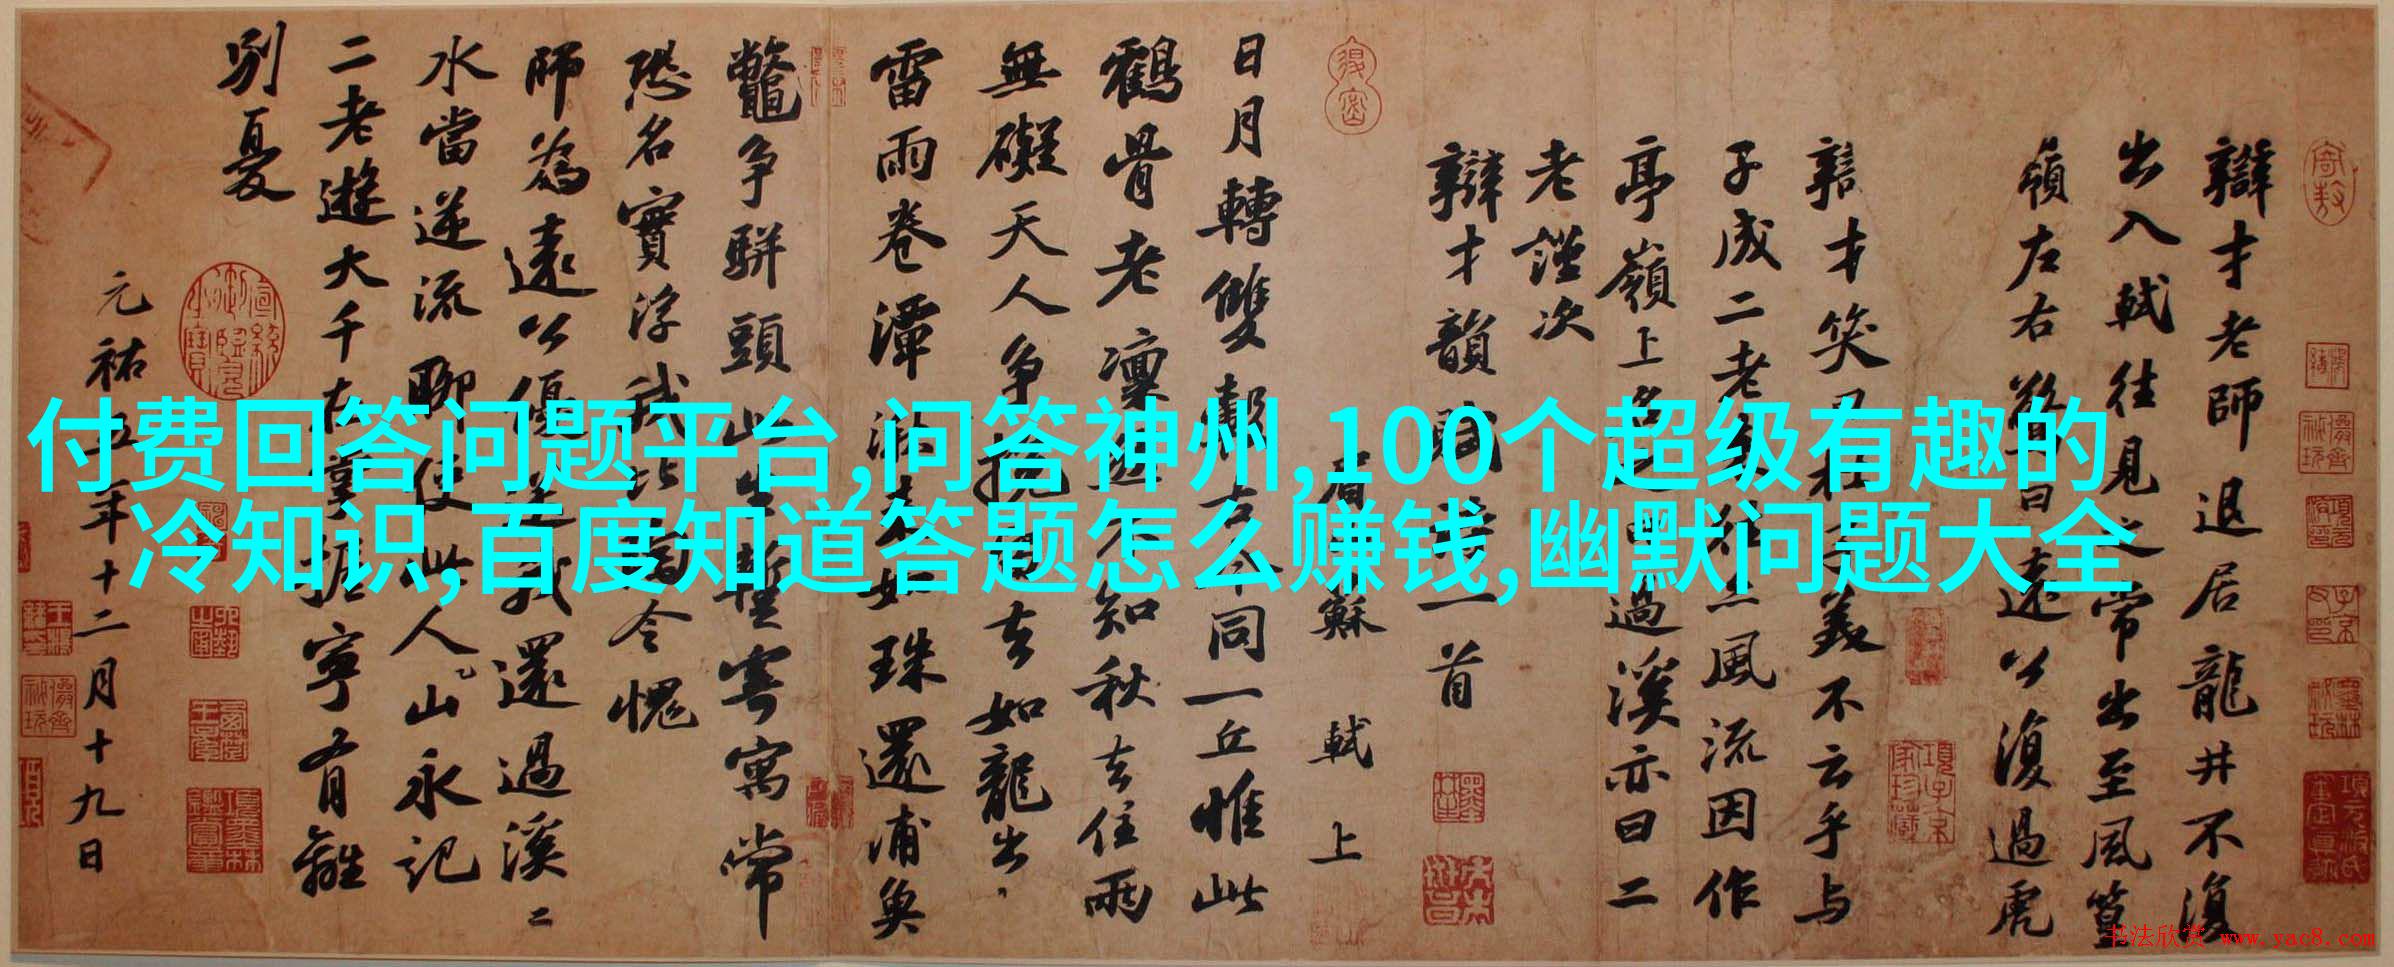 付费回答问题平台,问答神州,100个超级有趣的
冷知识,百度知道答题怎么赚钱,幽默问题大全
辯才老師退居龍井不復
出入軾往見之常出至風篁
嶺左右驚曰遠公復過虎
辯才笑曰杜子美不云乎与
子成二老來往亦風流因作
亭嶺上名之曰過溪亦曰二
老謹次
辯才韻賦詩一首
眉山蘇軾上
日月轉雙轂古今同一丘惟此
鶴骨老凛然不知秋去住兩
無礙天人争挽留去如龍出
雷雨卷潭湫來如珠還浦魚
鼈争駢頭此生暫寄寓常
恐名實浮我比陶令愧
師為遠公優送我還過溪二
水當逆流聊使此人山永記
二老遊大千在掌握寧有離
別憂
元祐五年十二月十九日
书法欣赏 www.yac8.com